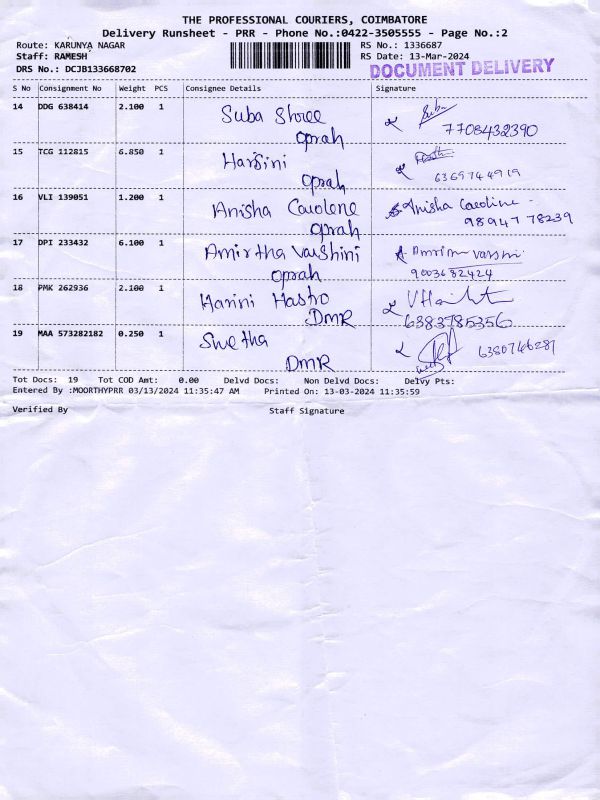 THE PROFESSIONAL COURIERS, COIMBATORE
Delivery Runsheet - PRR - Phone No.:0422-3505555 - Page No.:2
Route: KARUNYA NAGAR
RS No.: 1336687
Staff: RAMESH
RS Date: 13-Mar-2024
DRS No.: DCJB133668702
DOCUMENT DELIVERY
S No Consignment No Weight PCS Consignee Details Signature
14 DDG 638414 2.100 1 Suba Shree Suba
oprah 7708432390
15 TCG 112815 6.850 1 Harsini
oprah 6369744919
16 VLI 139051 1.200 1 Anisha Carolene Anisha Caroline
oprah 98947 78239
17 DPI 233432 6.100 1 Amirtha Varshini
oprah 9003682424
18 PMK 262936 2.100 1 Harini Hastro
DMR 6383785356
19 MAA 573282182 0.250 1 Swetha 6380746287
DMR
Tot Docs: 19 Tot COD Amt: 0.00 Delvd Docs: Non Delvd Docs: Delvy Pts:
Entered By :MOORTHYPRR 03/13/2024 11:35:47 AM Printed On: 13-03-2024 11:35:59
Verified By Staff Signature